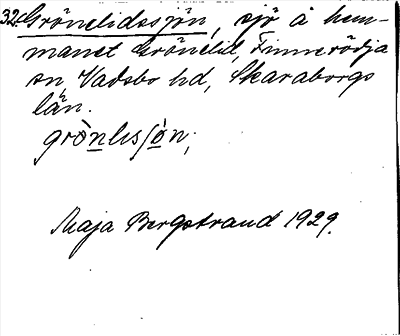 32. Grönelidssjön, sjö å hem-
manet Grönelid, Finnerödja
sn, Vadsbo hd, Skaraborgs
län.
Maja Bergstrand 1929.